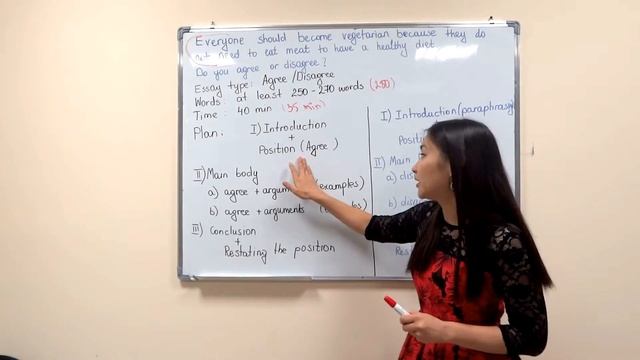 Everyone should become vegetarian because they do
not need to eat meat to have a healthy diet
Do you agree or disagree?
Essay type: Agree/Disagree
Words: at least 250-270 words (250)
Time: 40 min (35 min)
Plan: I) Introduction
+
Position (Agree)
II) Main body
a) agree + (examples)
b) agree + arguments
III) Conclusion
+
Restating the position
I) Introduction
II) Main
a)
b)